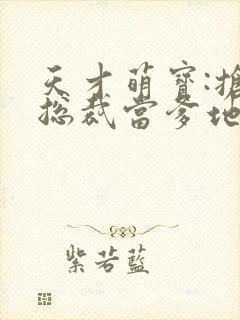 天才萌寶:搶
總裁當爹地
紫若藍